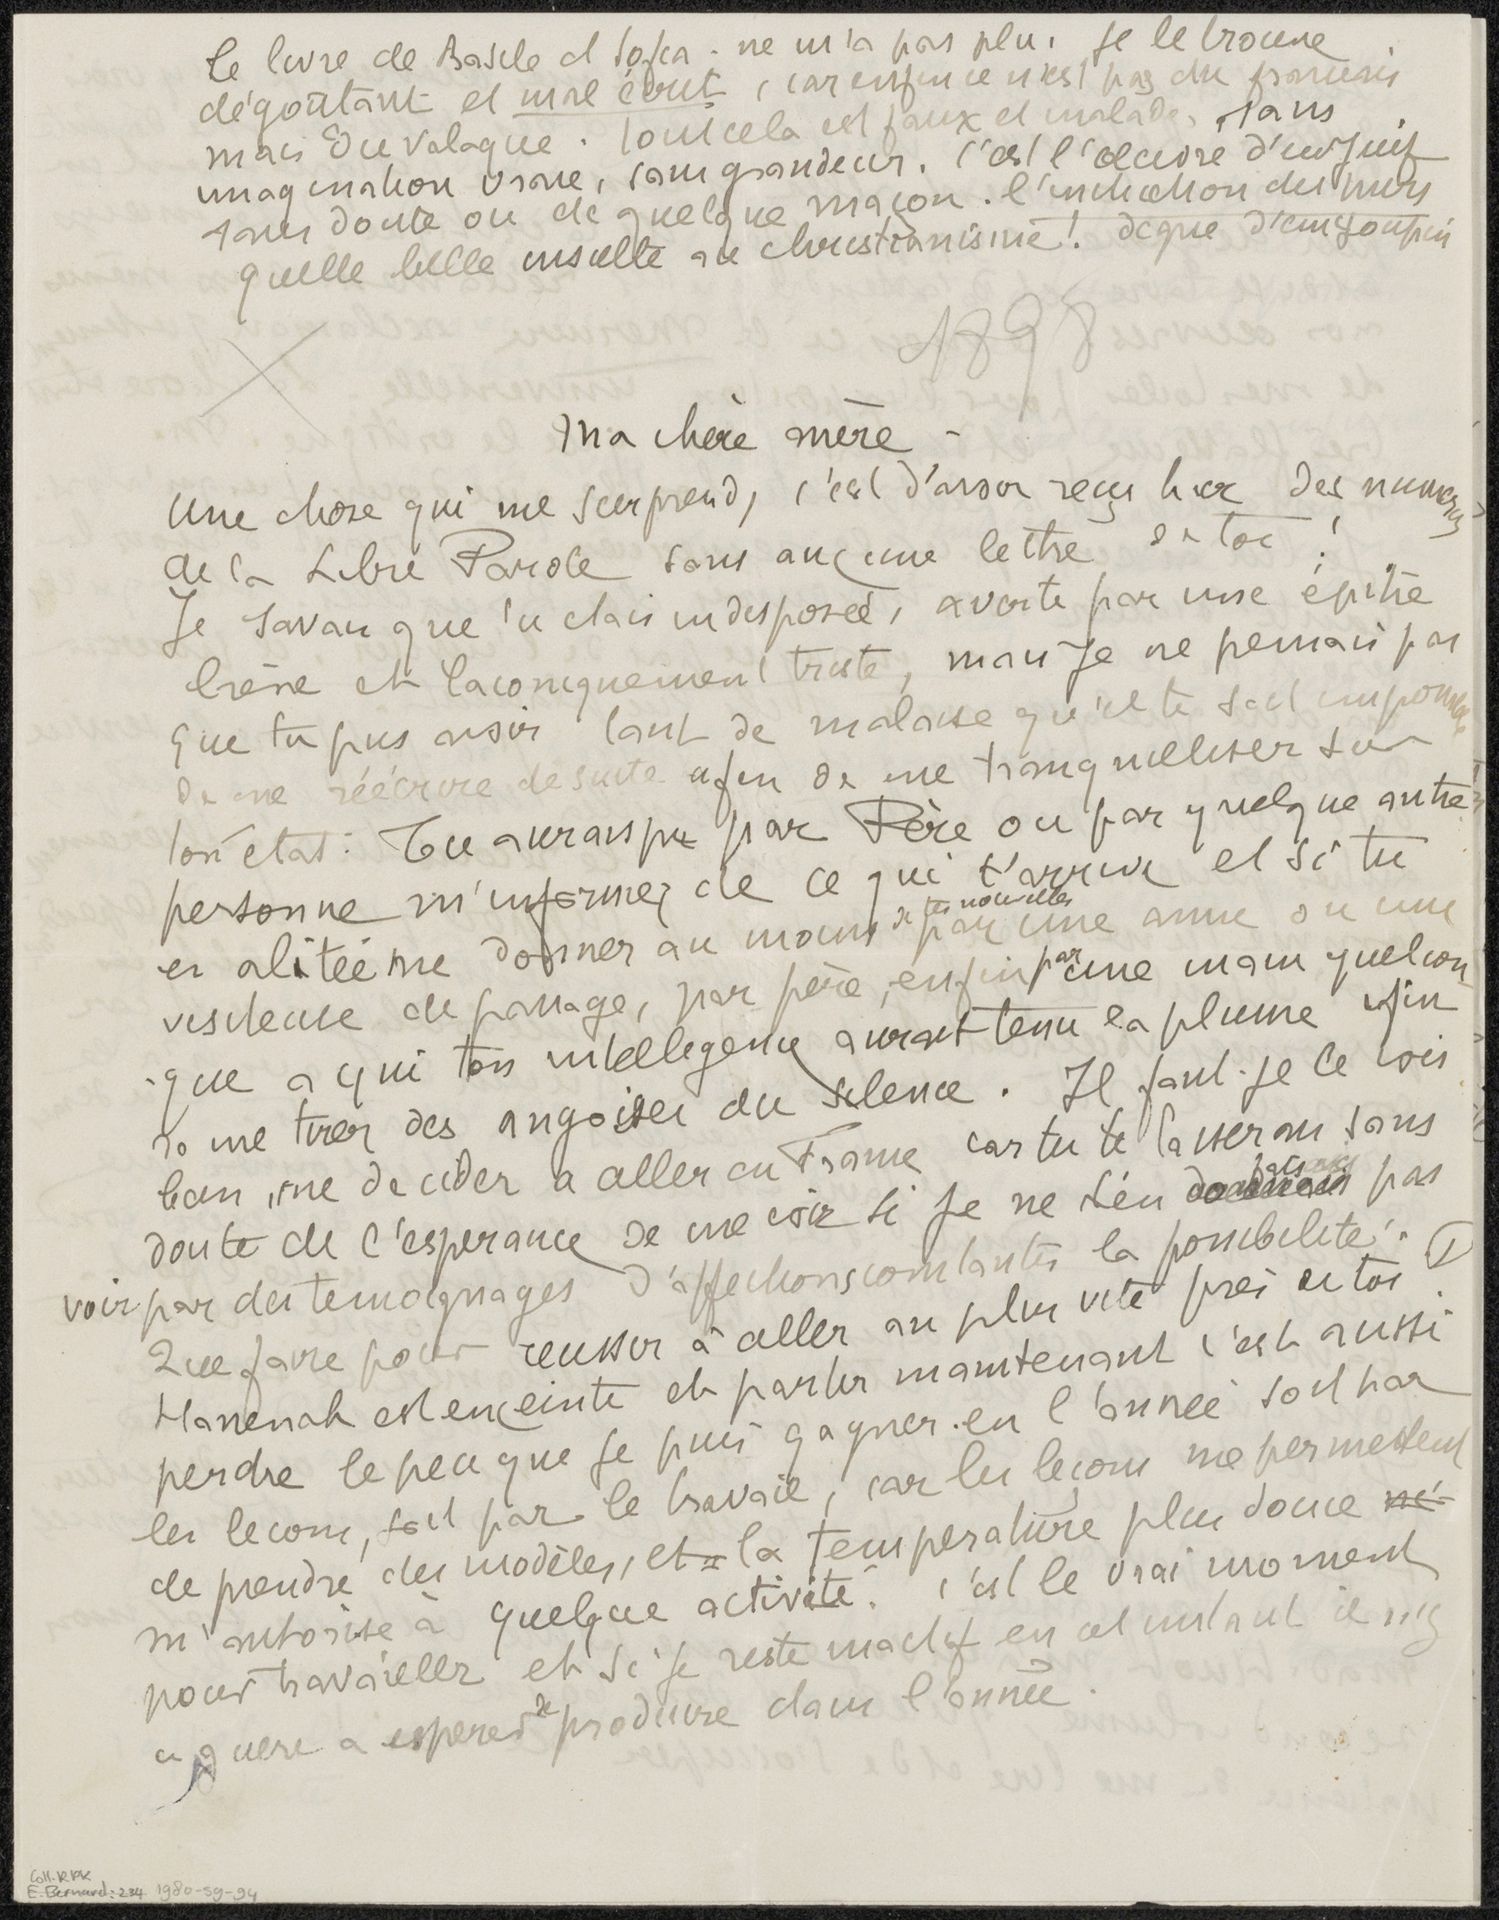 Le livre de Basile et Sofia. ne m'a pas plu. je le trouve
dégoûtant et mal écrit, car enfin ce n'est pas du francais
mais du valaque. tout cela est faux et malade, sans
imagination vraie, sans grandeur. c'est l'oeuvre d'un juif
sans doute ou de quelque maçon. l'
quelle belle insulte au christianisme! digne d'un youpin
1898
Ma chère mère -
Une chose qui me surprend, c'est d'avoir reçu hier des numeros
de la Libre Parole sans aucune lettre de toi!
Je savais que tu etais indisposée, averti par une épitre
brève et laconiquement triste, mais je ne pensais pas
que tu pus avoir tant de malaise qu'il te soit impossible
de me réécrire de suite afin de me tranquilliser sur
ton état. Tu aurais pu par Père ou par quelque autre
personne m'informer de ce qui t'arrive et si tu
es alitée me donner au moins de tes nouvelles par une amie ou une
visiteuse de passage, par père, enfin par une main quelcon
que a qui ton intelligence aurait tenu la plume afin
de me tirer des angoisses du silence. Il faut je le vois
bien, me decider a aller en France car tu te lasseras sans
doute de l'esperance de me voir si je ne t'en fais pas
voir par des temoignages d'affections constantes la possibilité. I
Que faire pour reussir à aller au plus vite près de toi.
Hanenah est enceinte et partir maintenant c'est aussi
perdre le peu que je puis gagner en l'année soit par
les lecons, soit par le travail, car les leçons me permettent
de prendre des modèles, et la temperature plus douce
m'autorise à quelque activité. c'est le vrai moment
pour travailler et si je reste inactif en cet instant il n'y
a guere a esperer de produire dans l'année.
Coll. RPK
E. Bernard: 234 1980-59-94